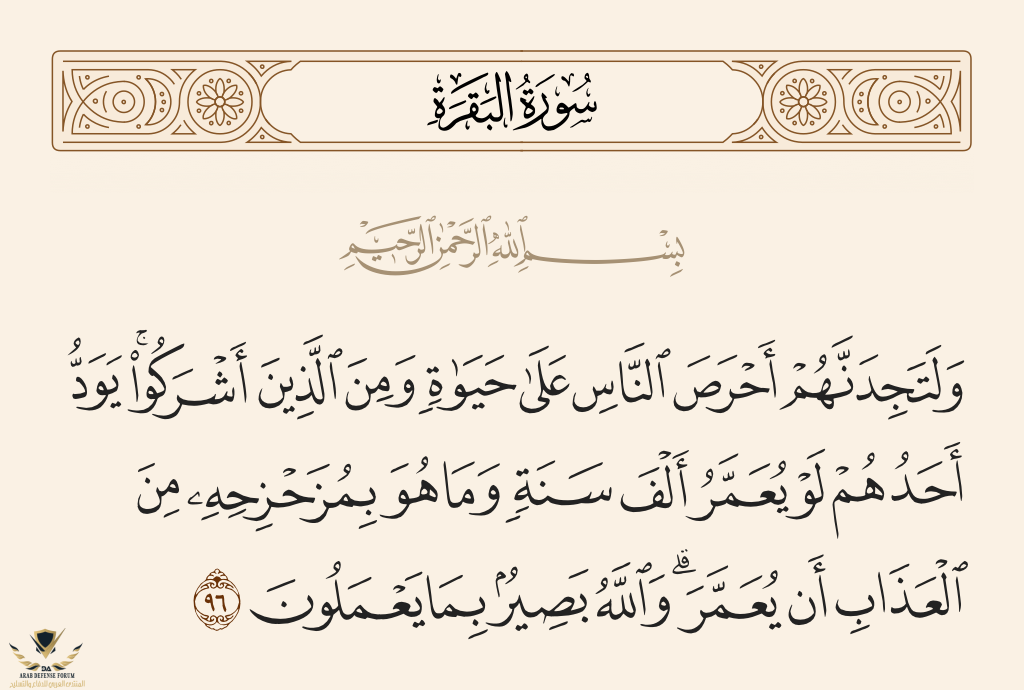 سُورَةُ البَقَرَةِ
بِسْمِ ٱللَّهِ ٱلرَّحْمَٰنِ ٱلرَّحِيمِ
وَلَتَجِدَنَّهُمْ أَحْرَصَ ٱلنَّاسِ عَلَىٰ حَيَوٰةٍ وَمِنَ ٱلَّذِينَ أَشْرَكُوا۟ ۚ يَوَدُّ
أَحَدُهُمْ لَوْ يُعَمَّرُ أَلْفَ سَنَةٍ وَمَا هُوَ بِمُزَحْزِحِهِۦ مِنَ
ٱلْعَذَابِ أَن يُعَمَّرَ ۗ وَٱللَّهُ بَصِيرٌۢ بِمَا يَعْمَلُونَ ٩٦
DA
ARAB DEFENSE FORUM
المنتدى العربي للدفاع والتسليح